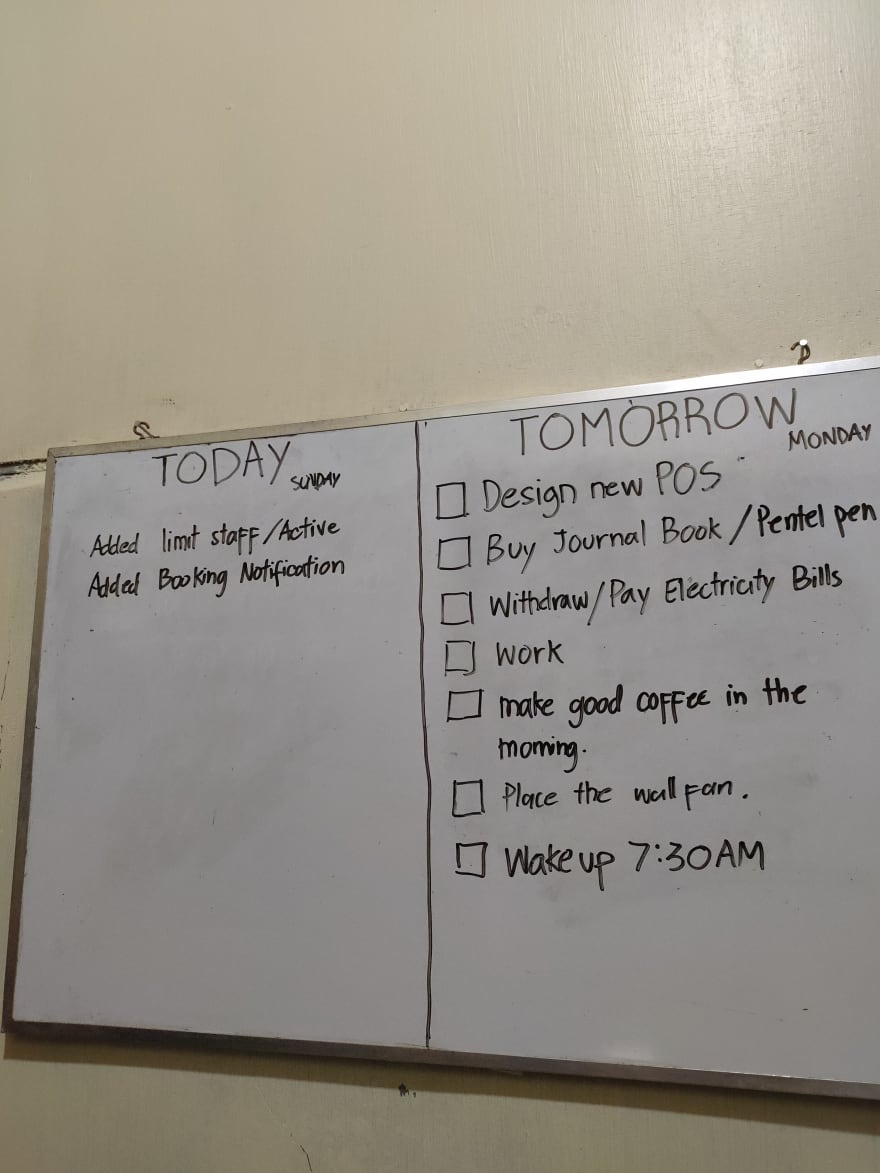 TODAY SUNDAY
Added limit staff/Active
Added Booking Notification
TOMORROW MONDAY
Design new POS
Buy Journal Book/Pentel pen
Withdraw/Pay Electricity Bills
Work
make good coffee in the
morning.
Place the wall fan.
Wake up 7:30AM